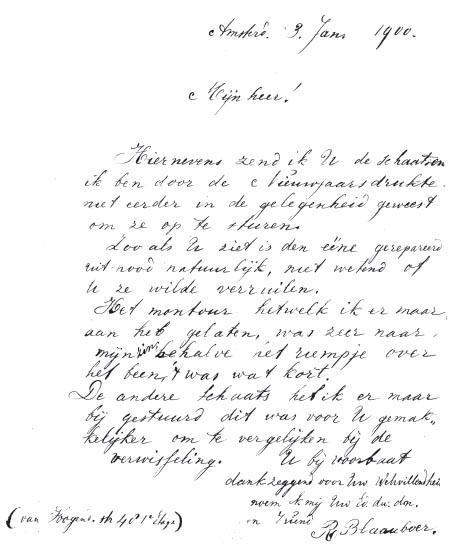 Amsterd. 3. Jan. 1900.
Mijnheer!
Hiernevens zend ik U de schaatsen
ik ben door de Nieuwjaarsdrukte
niet eerder in de gelegenheid geweest
om ze op te sturen.
Zoo als U ziet is den eëne gerepareerd
uit nood natuurlijk, niet wetend of
U ze wilde verruilen.
Het montuur hetwelk ik er maar
aan heb gelaten, was zeer naar
mijn zin, behalve het riempje over
het been, 't was wat kort.
De andere schaats heb ik er maar
bij gestuurd dit was voor U gemak„
kelijker om te vergelijken bij de
verwisseling. U bij voorbaat
dankzeggend voor Uw Welwillendheid
noem ik mij Uw Ed. dw. dn.
en Vriend
R Blaauboer.
(van 40 1e Etage)